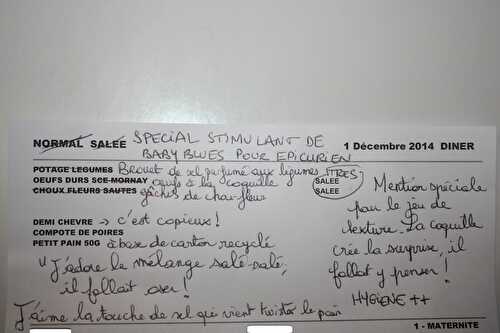 NORMAL SALEE SPECIAL STIMULANT DE
BABY BLUES POUR EPICURIEN
1 Décembre 2014 DINER
POTAGE LEGUMES Brouet de sel parfumé aux légumes STRES
OEUFS DURS SCE MORNAY oeufs à la coquille SALEE
CHOUX.FLEURS SAUTES gâchés de chou-fleur SALEE
DEMI CHEVRE → c'est copieux!
COMPOTE DE POIRES
PETIT PAIN 50G à base de carton recyclé
"J'adore le mélange salé-salé,
il fallait oser!
J'aime la touche de sel qui vient twister le pain
Mention spéciale
pour le jeu de
texture. La coquille
crée la surprise, il
fallait y penser!
HYGIENE ++
1 - MATERNITE